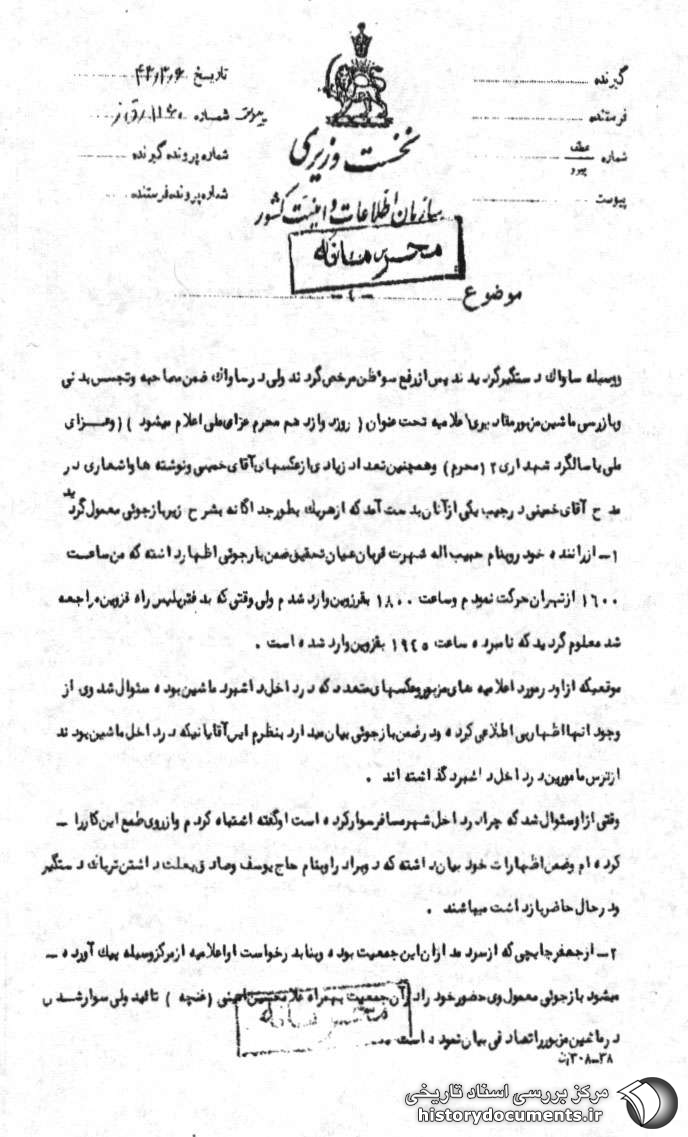 گیرنده
تاریخ ۴۳٫۳٫۶
فرستنده
شماره
شماره عطف پیرو
شماره پرونده گیرنده
پیوست
شماره پرونده فرستنده
نخست وزیری
سازمان اطلاعات و امنیت کشور
محرمانه
موضوع
-۴-
وسیله ساواک دستگیر گردیدند پس از رفع سوءظن مرخص گردند ولی در ساواک ضمن مصاحبه و تجسس بدنی
و بازرسی ماشین مزبور مقادیری اعلامیه تحت عنوان ( روز دوازدهم محرم عزای ملی اعلام میشود ) ( و عزای
ملی یا سالگرد شهدای ۱۲ محرم ) و همچنین تعداد زیادی از عکسهای آقای خمینی و نوشته ها و اشعاری در
مدح آقای خمینی در جیب یکی از آنان بدست آمد که از هریک بطور جداگانه بشرح زیر بازجوئی معمول گردید
۱- از راننده خودرو بنام حبیب اله شهرت قربان تحقیق ضمن بازجوئی اظهار داشته که من ساعت
۱۶۰۰ از تهران حرکت نمودم و ساعت ۱۸۰۰ بقزوین وارد شدم ولی وقتی که بدفتر پلیس راه قزوین مراجعه
شد معلوم گردید که نامبرده ساعت ۱۹۴۵ بقزوین وارد شده است .
موقعیکه از او در مورد اعلامیه های مزبور و عکسهای متعدد که در داخل داشبرد ماشین بوده سئوال شد وی از
وجود آنها اظهار بی اطلاعی کرده و در ضمن بازجوئی بیان میدارد بنظرم این آقایانیکه در داخل ماشین بودند
از ترس مامورین در داخل داشبرد گذاشته اند .
وقتی از او سئوال شد که چرا در داخل شهر مسافر سوار کرده است او گفته اشتباه کردم و از روی طمع این کار را -
کرده ام و ضمن اظهارات خود بیان داشته که دو برادر او بنام حاج یوسف و صادق بعلت داشتن تریاک دستگیر
و در حال حاضر بازداشت میباشند .
۲- از جعفر چایچی که از سردمداران این جمعیت بوده و بنا بدرخواست او اعلامیه از مرکز وسیله پیک آورده -
میشود بازجوئی معمول وی حضور خود را در آن جمعیت بهمراه غلامحسین امینی (غنچه ) تائید ولی سوار شدن
در ماشین مزبور را تصادفی بیان نموده است
۳۰۸-۳۸ت
مرکز بررسی اسناد تاریخی
historydocuments.ir